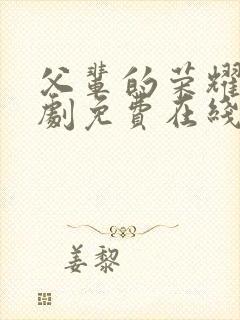 父輩的荣耀
劇免費在綫
姜黎